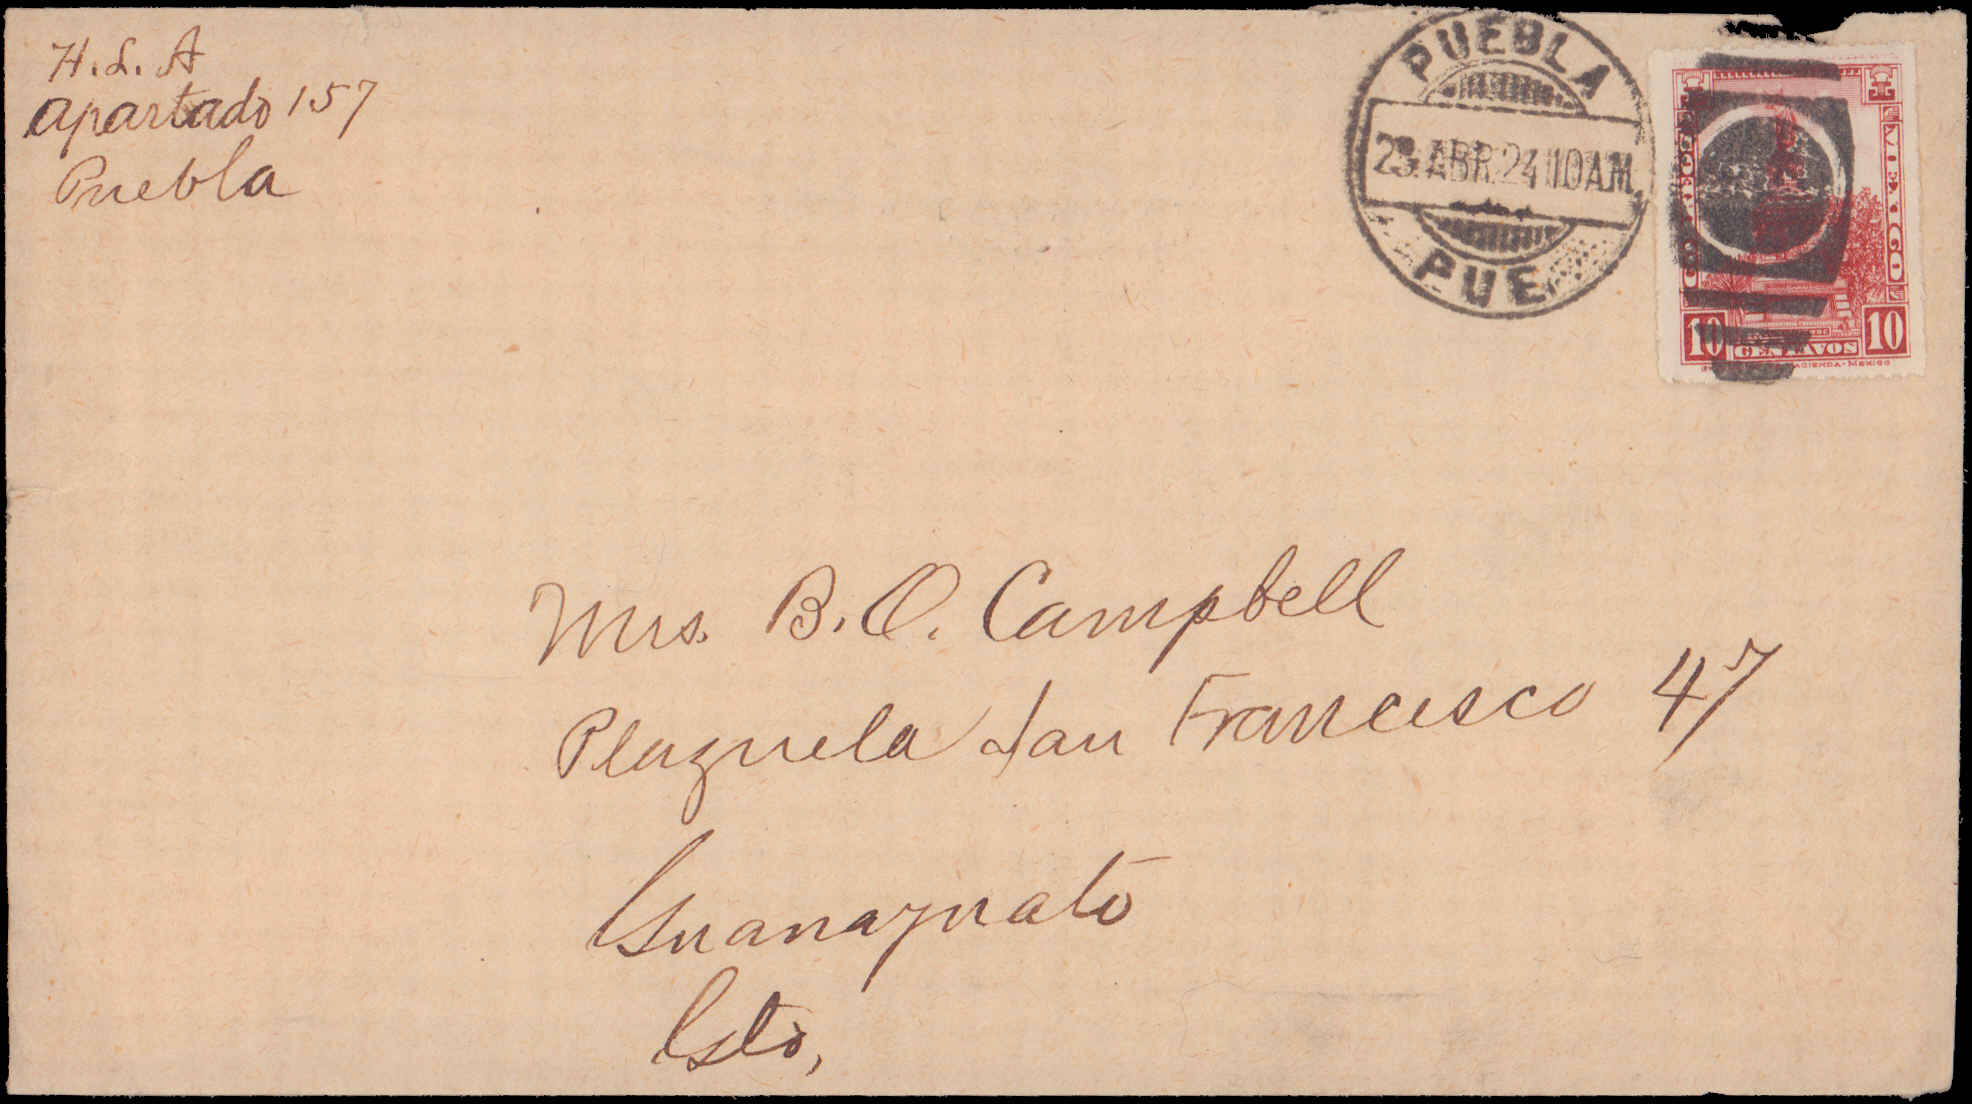 H. L. A
apartado 157
Puebla
PUEBLA
ABR. 24 10 A.M.
PUE
MEXICO
10 CENTAVOS 10
HACIENDA - MEXICO
Mrs. B. O. Campbell
Plazuela San Francisco 47
Guanajuato
Gto,